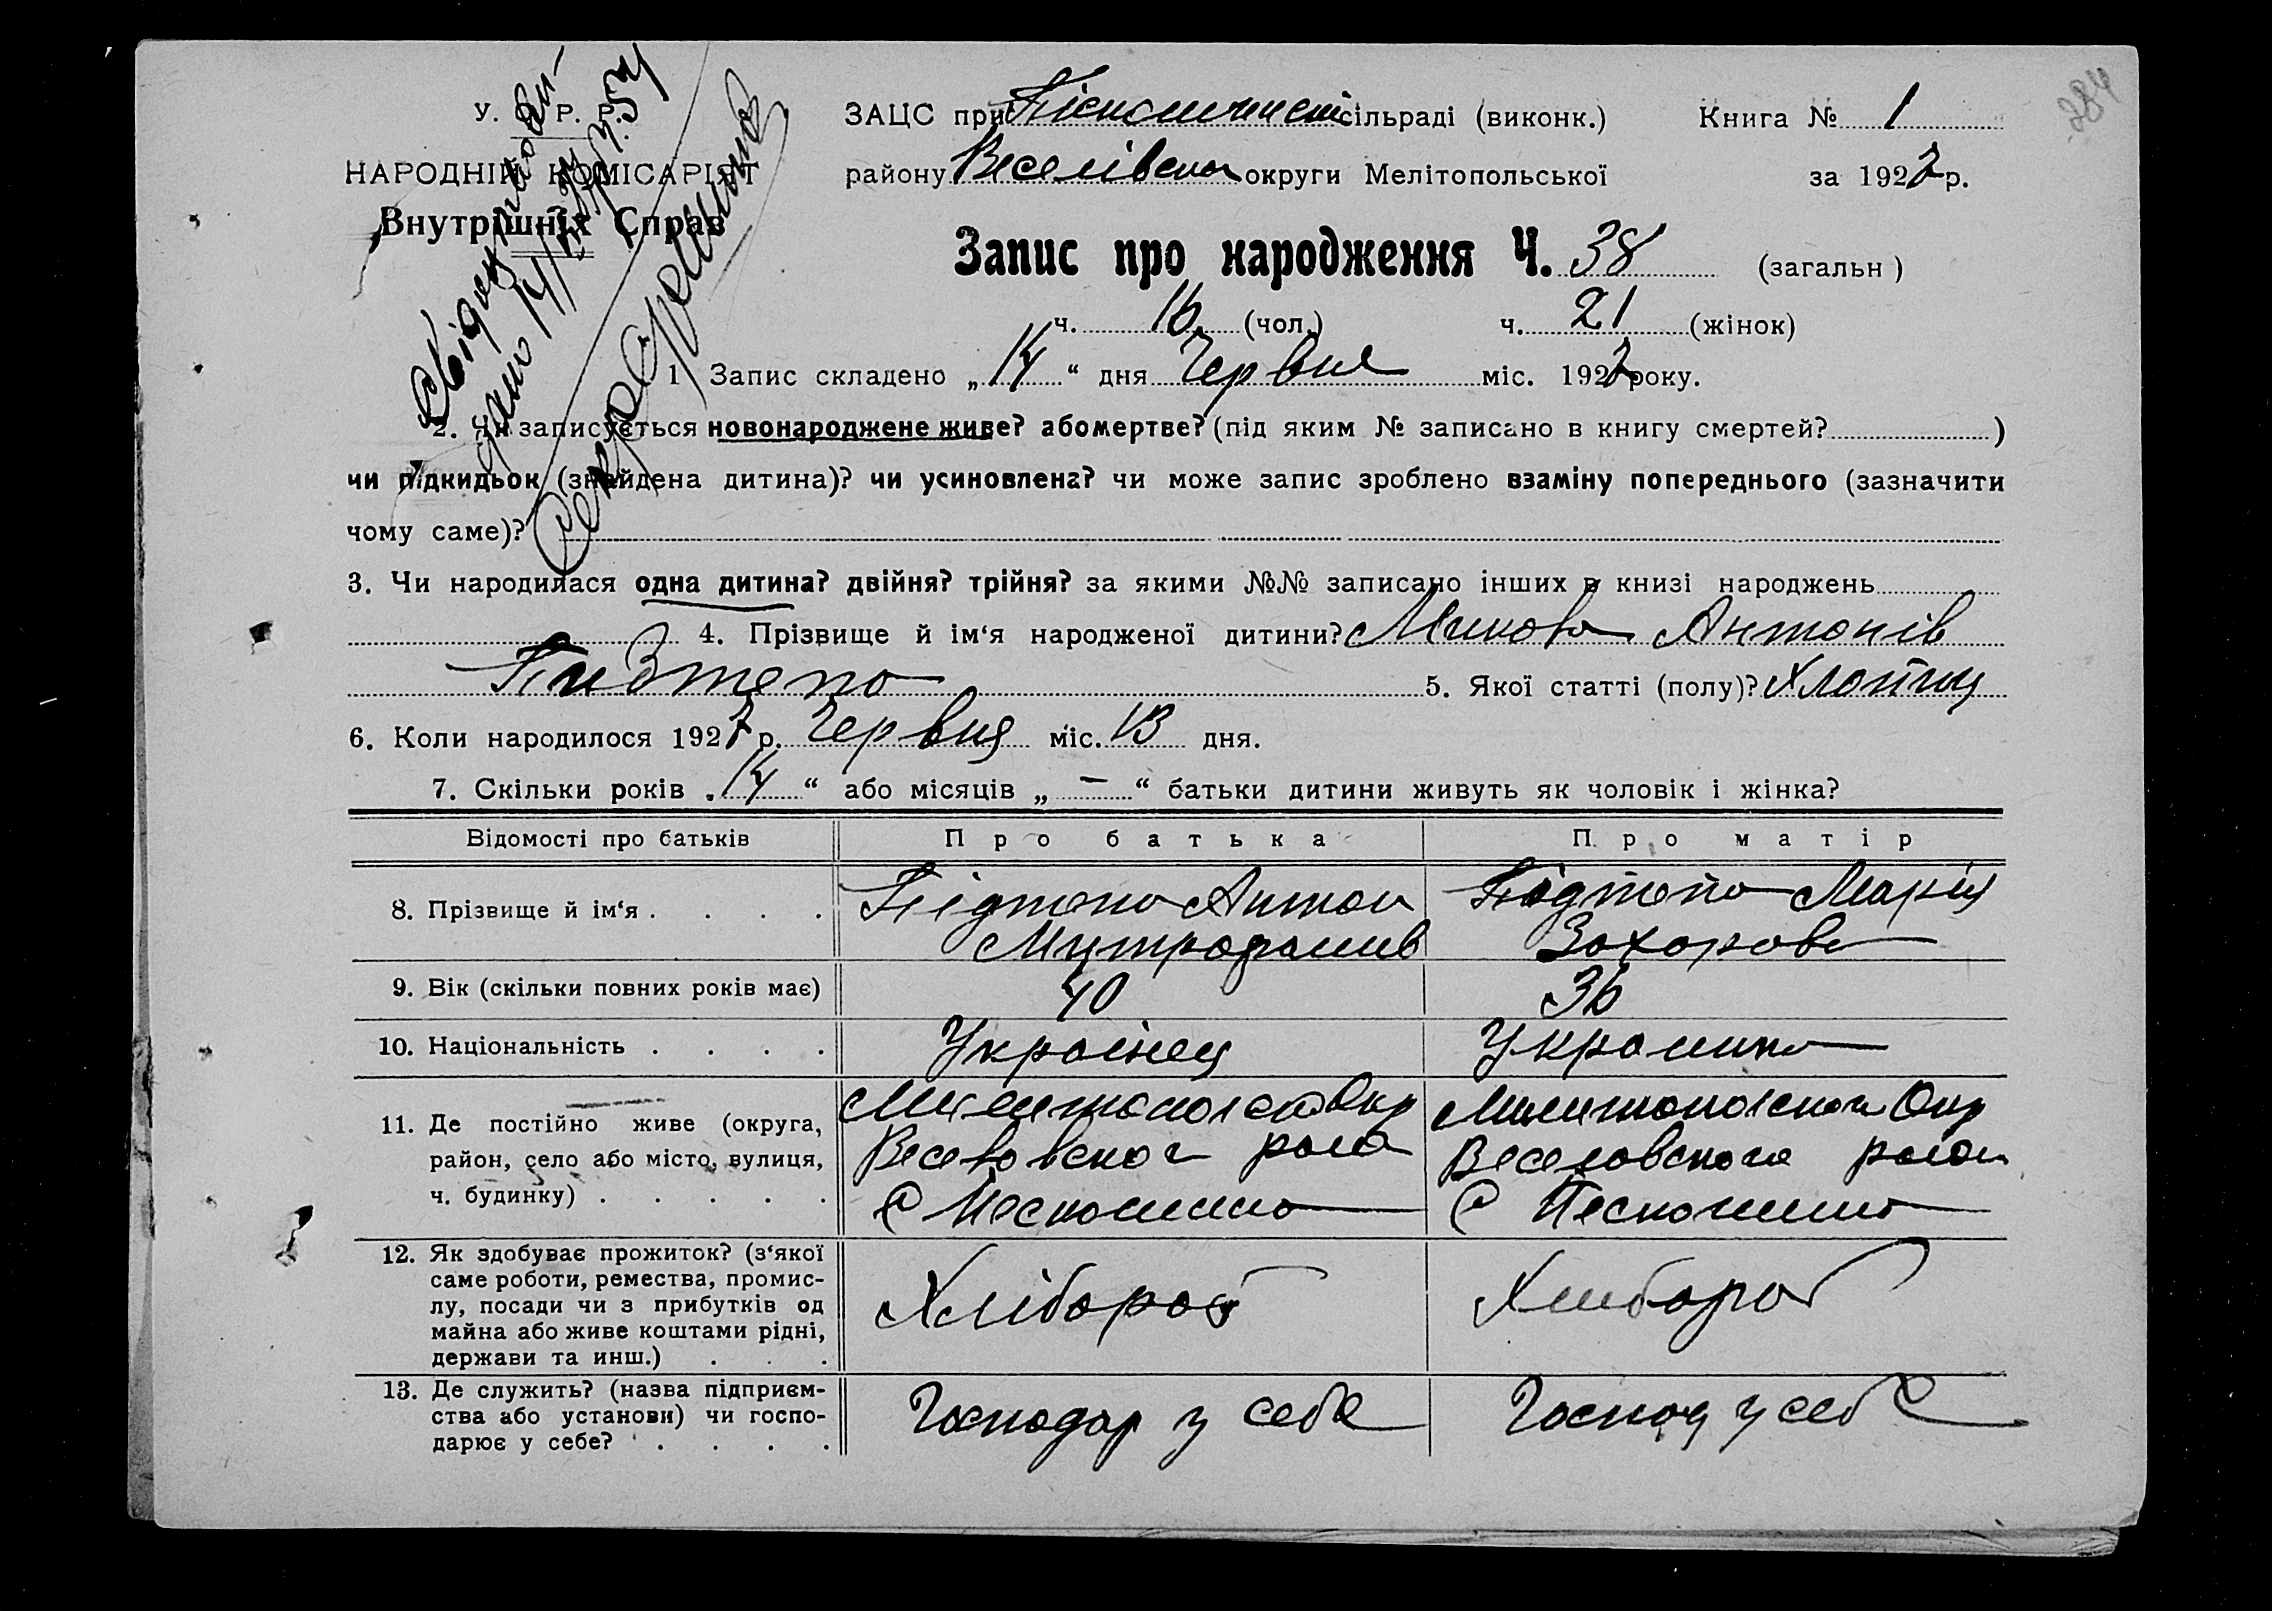 284
У. С. Р. Р.
НАРОДНІЙ КОМІСАРІЯТ
Внутрішніх Справ
ЗАЦС при сільраді (виконк.) Книга № 1
району Веселівськ округи Мелітопольської за 1927 р.
Запис про народження Ч. 38 (загальн)
ч. 16 (чол.) ч. 21 (жінок)
1 Запис складено „14“ дня Червня міс. 1927 року.
2. Чи записується новонароджене живе? або мертве? (під яким № записано в книгу смертей? )
чи підкидьок (знайдена дитина)? чи усиновлена? чи може запис зроблено взаміну попереднього (зазначити
чому саме)?
3. Чи народилася одна дитина? двійня? трійня? за якими №№ записано інших в книзі народжень
4. Прізвище й ім‘я народженої дитини? Микола Антонів
Пидтепа 5. Якої статті (полу)? Хлопець
6. Коли народилося 1927 р. Червня міс. 13 дня.
7. Скільки років „14“ або місяців „–“ батьки дитини живуть як чоловік і жінка?
Відомості про батьків Про батька Про матір
8. Прізвище й ім‘я . . . . Підтепа Антон Підтепа Марія
Митрофанив Захорова
9. Вік (скільки повних років має) 40 36
10. Національність . . . . Українець Украинка
11. Де постійно живе (округа, Милитопольской Окр Милитопольской Окр
район, село або місто, вулиця, Веселовског раиа Веселовского раиои
ч. будинку) . . . . . С Пескошино С Пескошино
12. Як здобуває прожиток? (з‘якої
саме роботи, ремества, промис-
лу, посади чи з прибутків од Хлібороб Хлибороб
майна або живе коштами рідні,
держави та инш.) . . .
13. Де служить? (назва підприєм-
ства або установи) чи госпо- Господар у себе Господ у себе
дарює у себе? . . . .